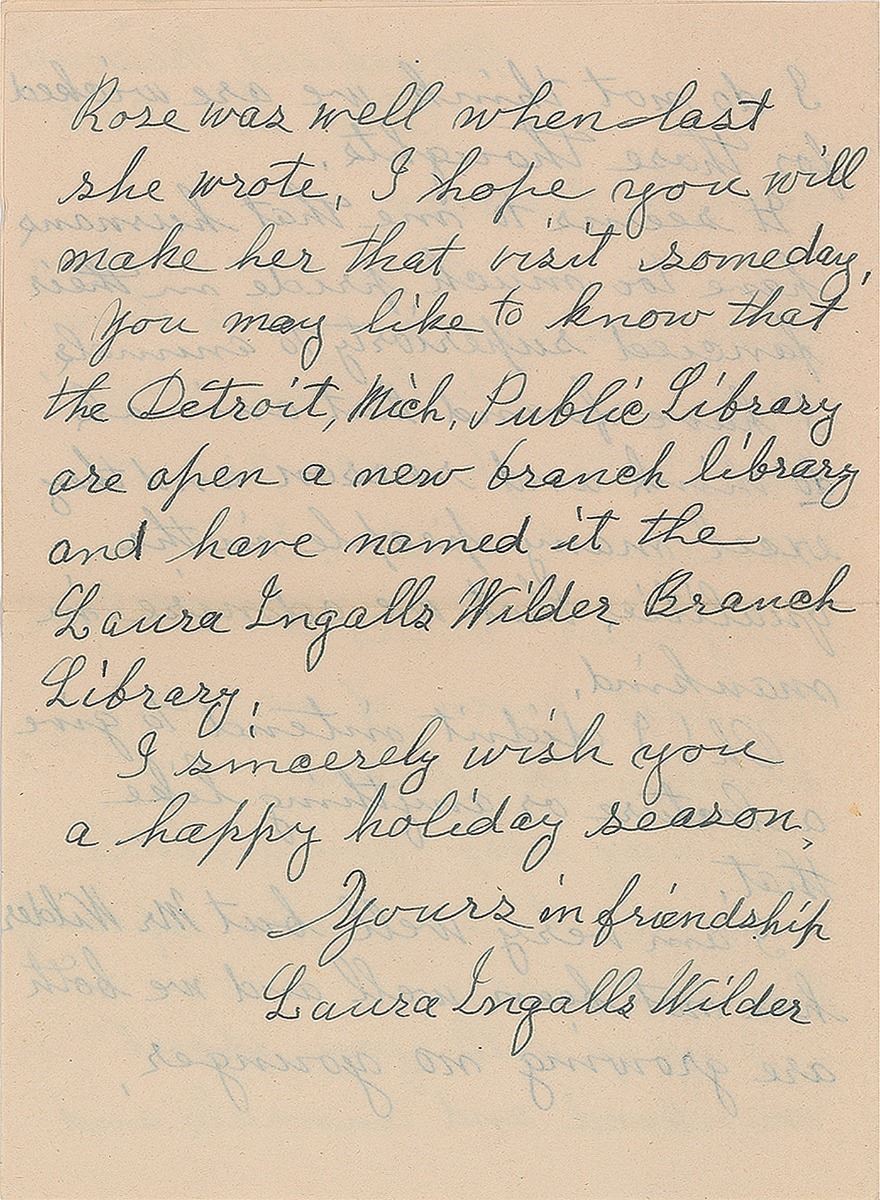 Rose was well when last
she wrote. I hope you will
make her that visit someday.
You may like to know that
the Detroit, Mich. Public Library
are open a new branch library
and have named it the
Laura Ingalls Wilder Branch
Library.
I sincerely wish you
a happy holiday season.
Yours in friendship
Laura Ingalls Wilder